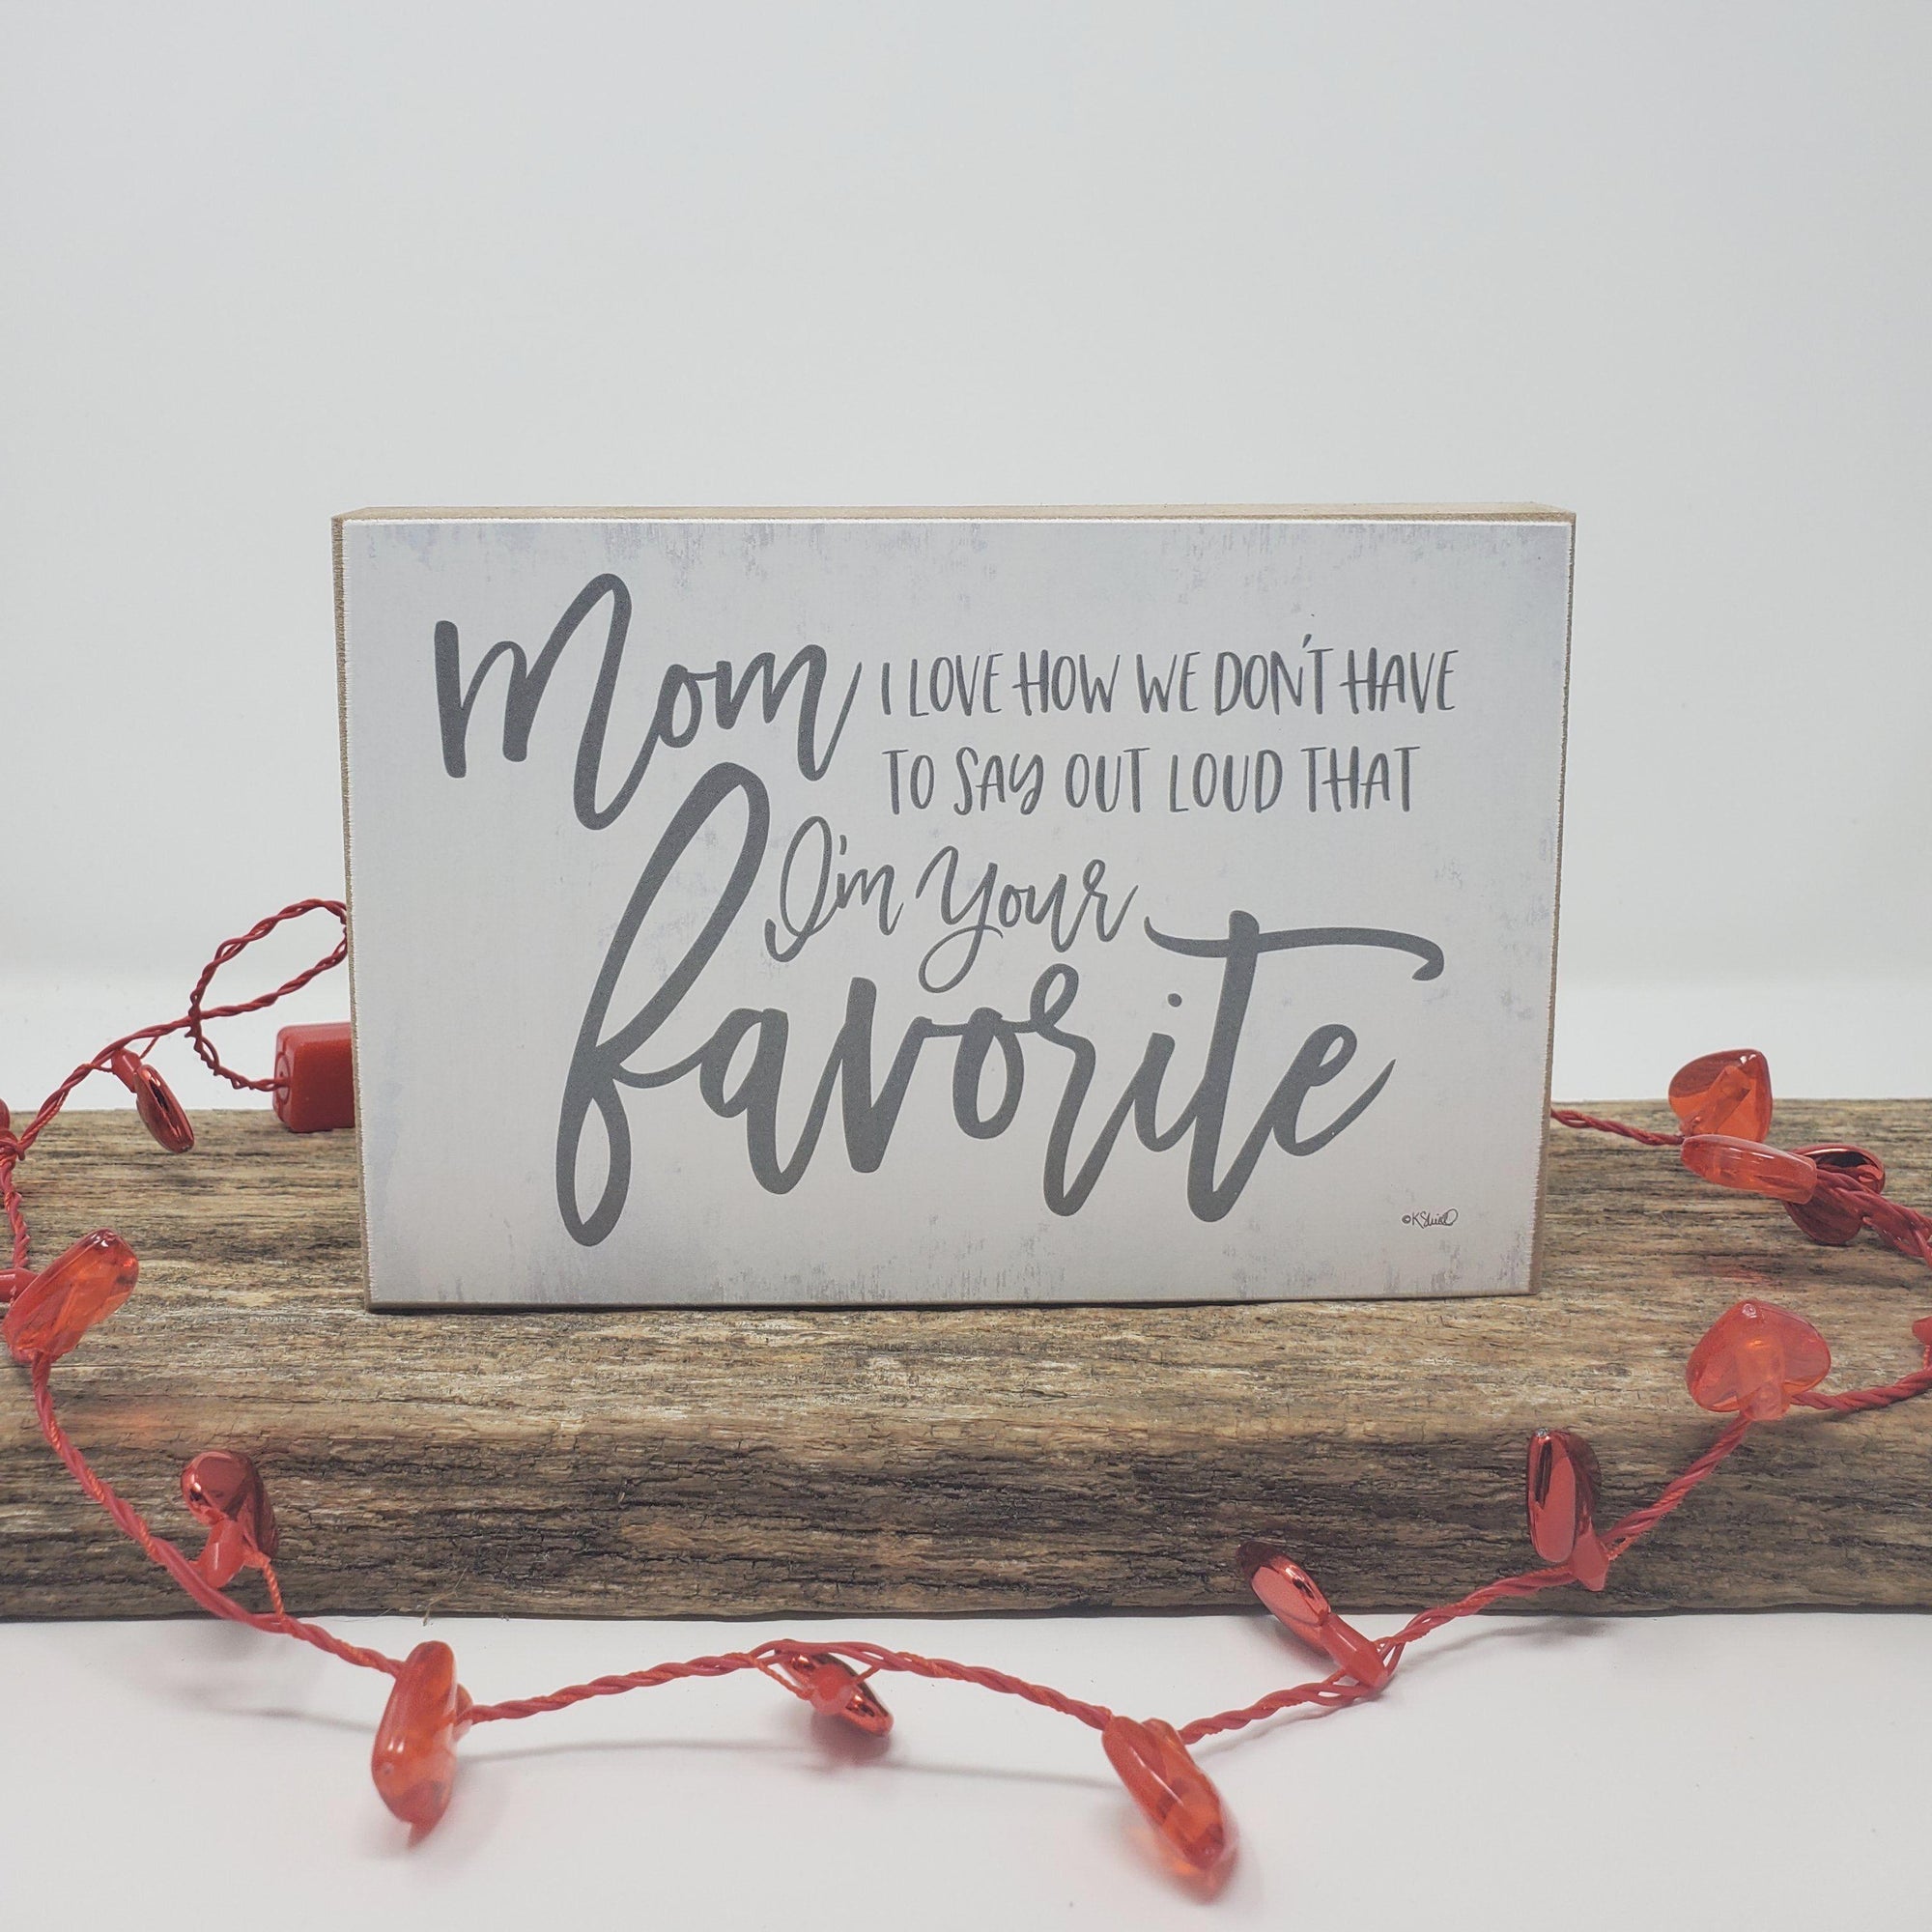 Mom I LOVE HOW WE DON'T HAVE
TO SAY OUT LOUD THAT
I'm Your
favorite